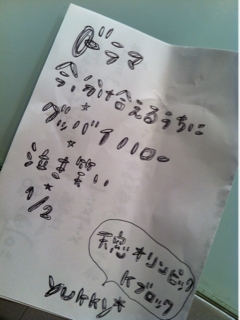 ドラマ
今、分け合えるうちに
グッバイハロー
泣き笑い
1/2
天窓オリンピック
Kブロック
YUKKY*